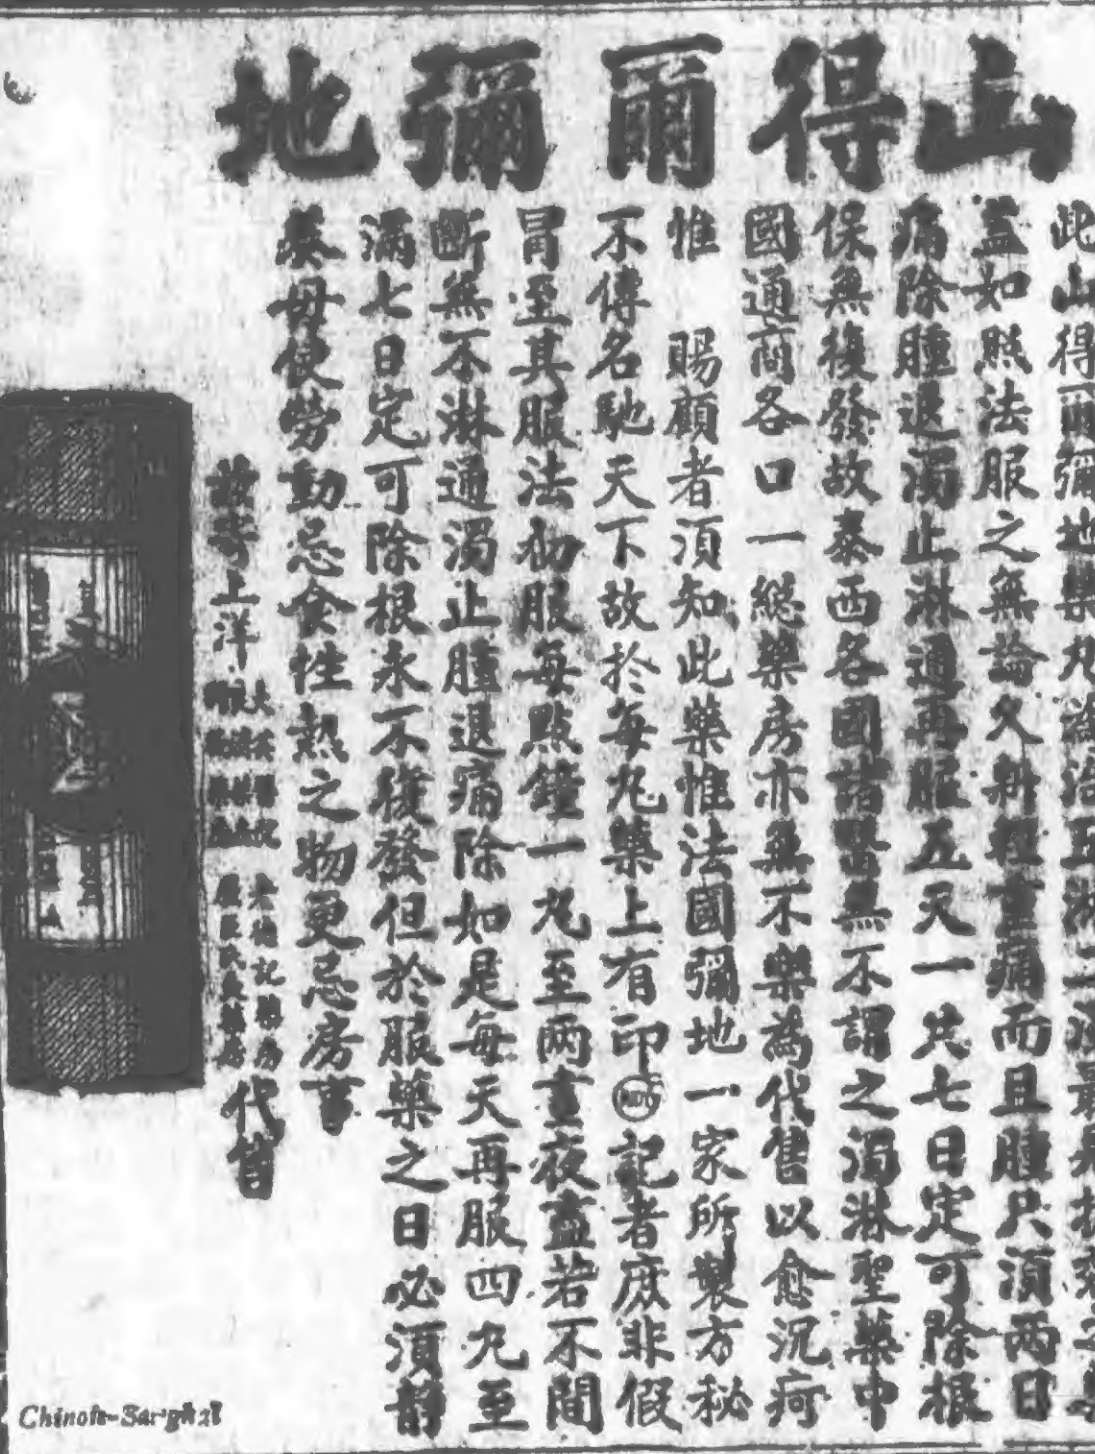 山得爾彌地
此山得爾彌地藥丸治五淋二濁最
蓋如照法服之無論久新輕重痛而且腫只湏兩日
痛除腫退濁止淋通再服五天一共七日定可除根
保無復發故泰西各國諸醫無不謂之濁淋聖藥中
國通商各口一総藥房亦無不樂為代售以愈沉疴
惟 賜顧者湏知此藥惟法國彌地一家所製方秘
不傳名馳天下故於每丸藥上有印記者庶非假
冐至其服法初服每點鐘一丸至兩晝夜盡若不間
斷無不淋通濁止腫退痛除如是每天再服四丸至
滿七日定可除根永不復發但於服藥之日必湏靜
養毋使勞動忌食性熱之物更忌房事
上洋
代售